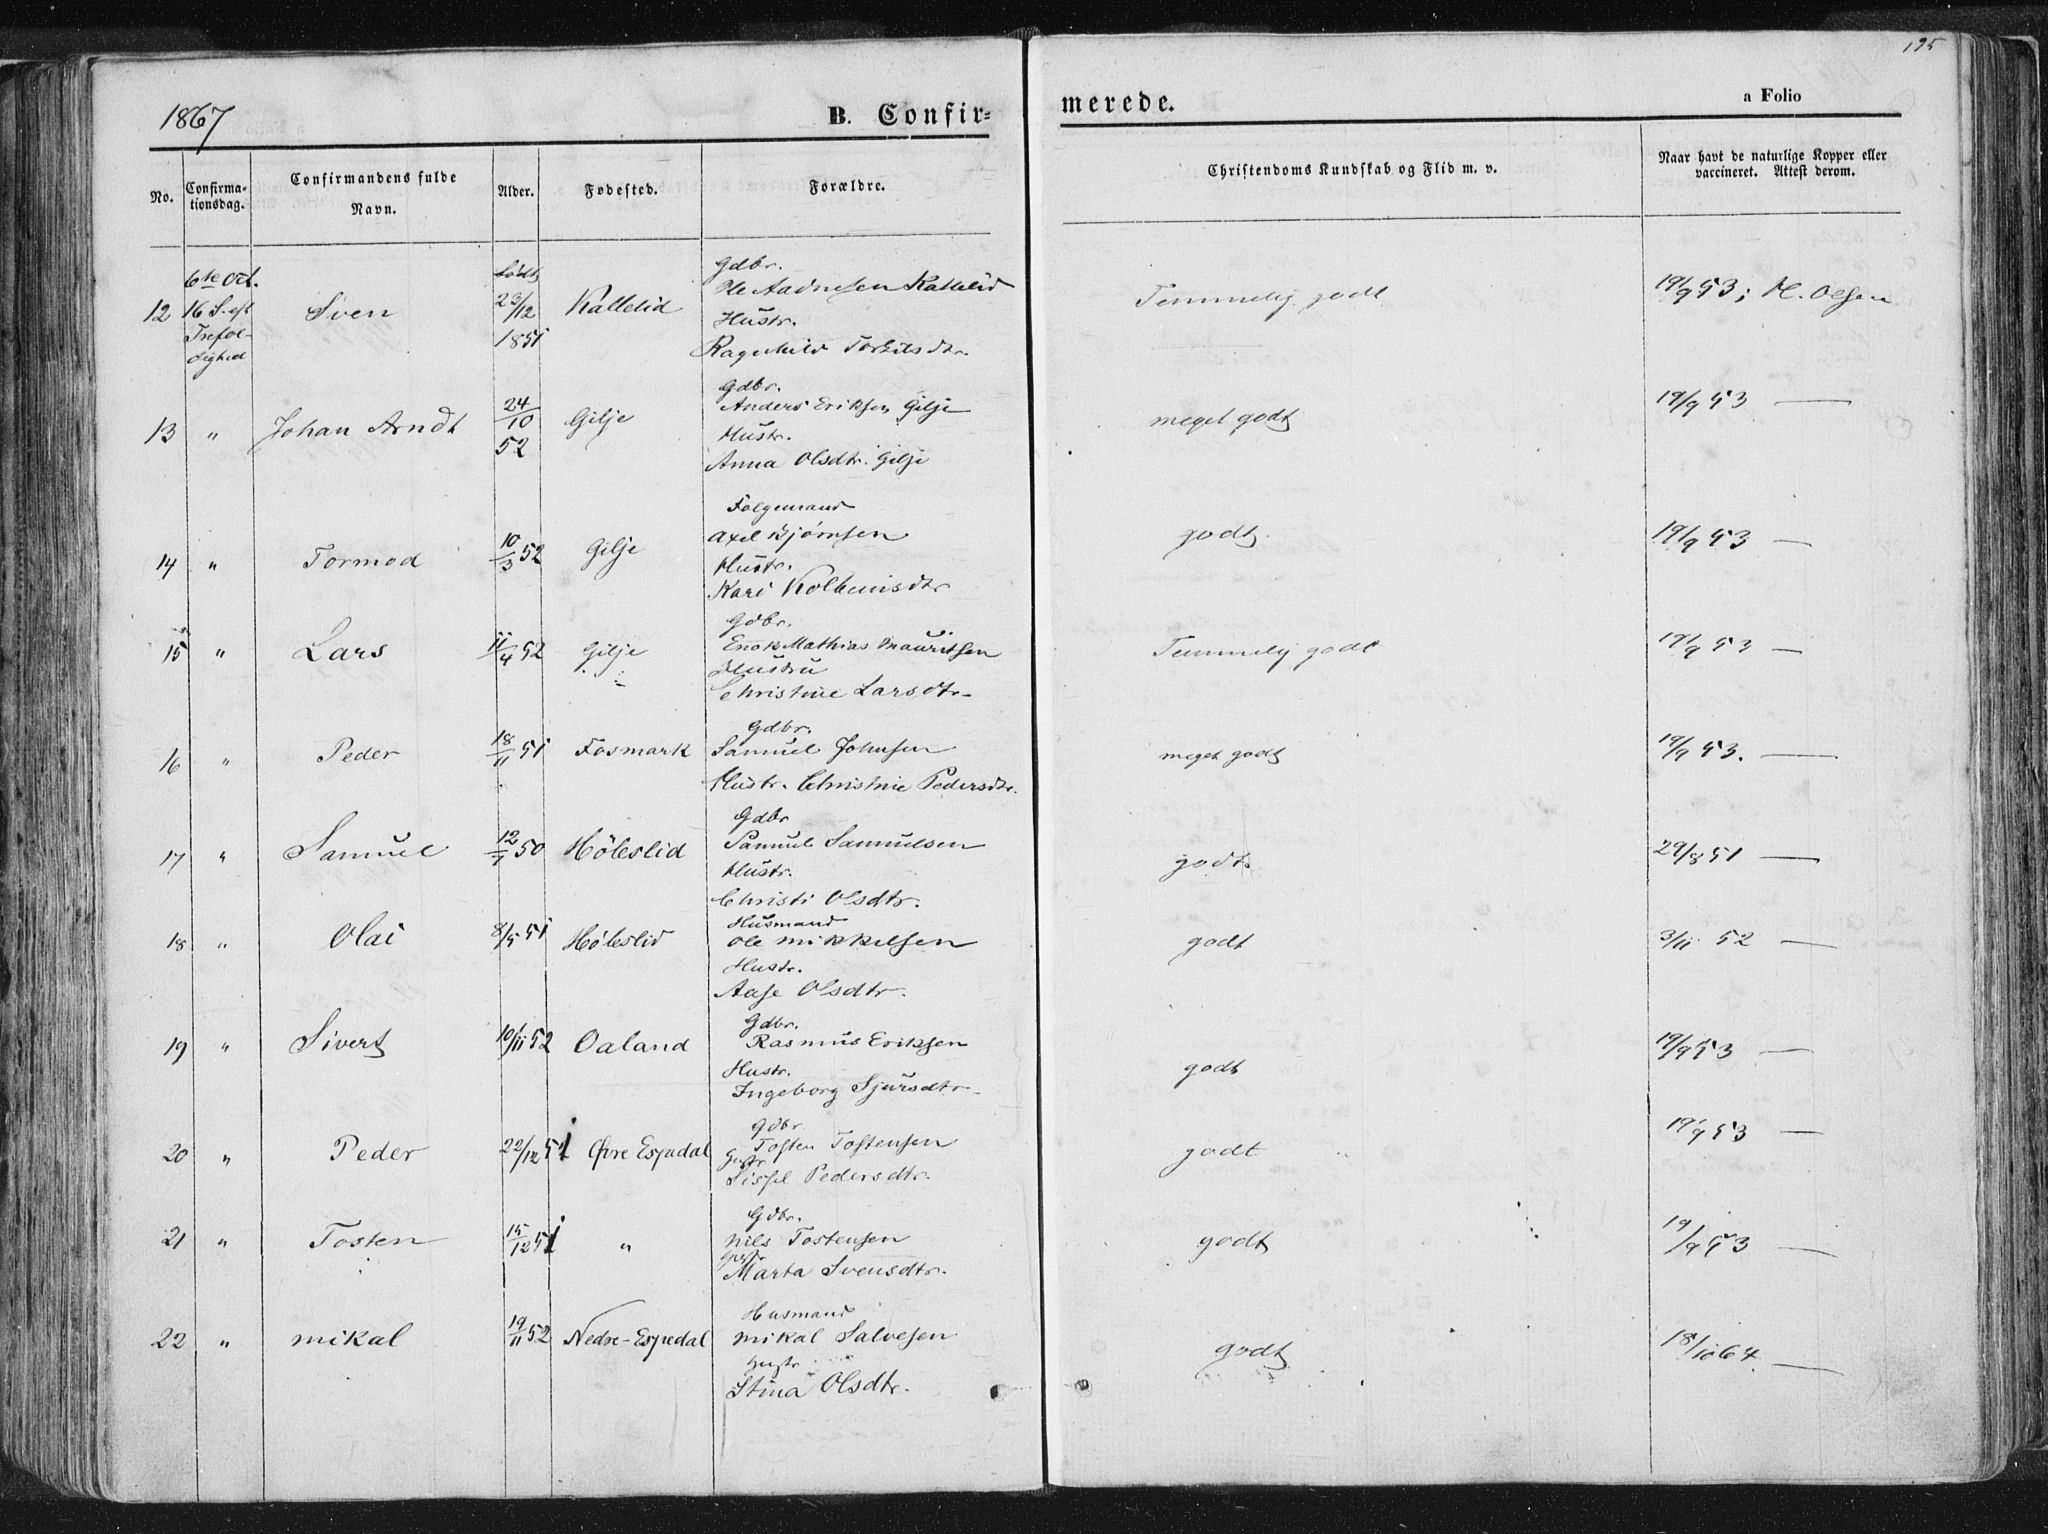 195
1867
B. Confir=
merede.
a Folio
No.
Confirma-
tionsdag.
Confirmandens fulde
Navn.
Alder.
Fødested.
Forældre.
Christendoms Kundskab og Flid m. v.
Naar havt de naturlige Kopper eller
vaccineret. Attest derom.
12 6te Oct. 16 S. eft Trefol- dighed Sven født 23/12 1851 Kallelid Gdbr. Ole Aadnesen Kallelid Hustr. Ragnhild Torkilsdtr. Temmelig godt 19/9 53; M. Olsen
13 " Johan Arndt 24/10 52 Gilje Gdbr. Anders Eriksen Gilje Hustr. Anna Olsdtr. Gilje meget godt 19/9 53 —
14 " Tormod 10/3 52 Gilje Følgemand Axel Bjørnsen Hustr. Kari Kolbeinsdtr godt 19/9 53 —
15 " Lars 11/4 52 Gilje Gdbr. Enok Mathias Mauritsen Hustru Christine Larsdtr. Temmelig godt 19/9 53 —
16 " Peder 18/11 51 Fosmark Gdbr. Samuel Johnsen Hustr. Christine Pedersdtr. meget godt 19/9 53. —
17 " Samuel 12/7 50 Høleslid Gdbr Samuel Samuelsen Hustr. Christi Olsdtr. godt 29/8 51 —
18 " Olai 8/5 51 Høleslid Husmand Ole Mikkelsen Hustr. Aase Olsdtr. godt 3/11 52 —
19 " Sivert 10/11 52 Oaland Gdbr. Rasmus Eriksen Hustr. Ingeborg Sjursdtr. godt 19/9 53 —
20 " Peder 22/12 51 Øvre Espedal Gdbr Tosten Tostensen Hustr Sissel Pedersdtr. godt 19/9 53 —
21 " Tosten 15/12 51 " Gdbr. Nils Tostensen Hustr Marta Svensdtr. godt 19/9 53 —
22 " Mikal 19/11 52 Nedre-Espedal Husmand Mikal Salvesen Hustr Stina Olsdtr. godt 18/10 64. —